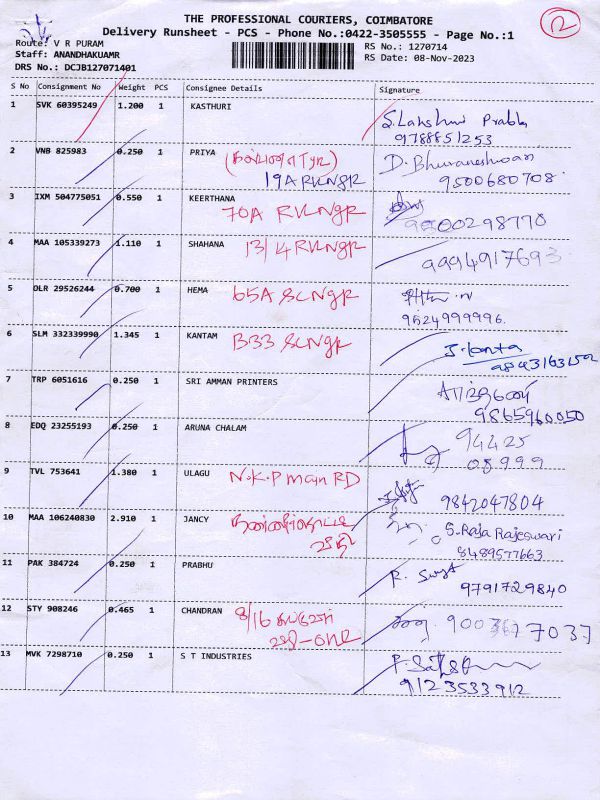 THE PROFESSIONAL COURIERS, COIMBATORE
12
Delivery Runsheet - PCS - Phone No.:0422-3505555 - Page No.:1
Route: V R PURAM
RS No.: 1270714
Staff: ANANDHAKUAMR
RS Date: 08-Nov-2023
DRS No.: DCJB127071401
S No Consignment No Weight PCS Consignee Details Signature
1 SVK 60395249 1.200 1 KASTHURI S. Lakshmi Prabha
9788851253
2 VNB 825983 0.250 1 PRIYA D. Bhuvaneshwari
19A RVLNgR 9500680708
3 IXM 504775051 0.550 1 KEERTHANA
70A RVLNgR 9600298770
4 MAA 105339273 1.110 1 SHAHANA 13/4 RVLNgR 9994917693
5 DLR 29526244 0.700 1 HEMA 65A SCNgR
9524999996
6 SLM 332339990 1.345 1 KANTAM B33 SCNgR
7 TRP 6051616 0.250 1 SRI AMMAN PRINTERS
9865960050
8 EDQ 23255193 0.250 1 ARUNA CHALAM 94425
08999
9 TVL 753641 1.380 1 ULAGU N.K.P main RD
9842047804
10 MAA 106240830 2.910 1 JANCY S. Raja Rajeswari
வீதி 8489577663
11 PAK 384724 0.250 1 PRABHU
9791729840
12 STY 908246 0.465 1 CHANDRAN 8/16
13 MVK 7298710 0.250 1 S T INDUSTRIES
9123533912